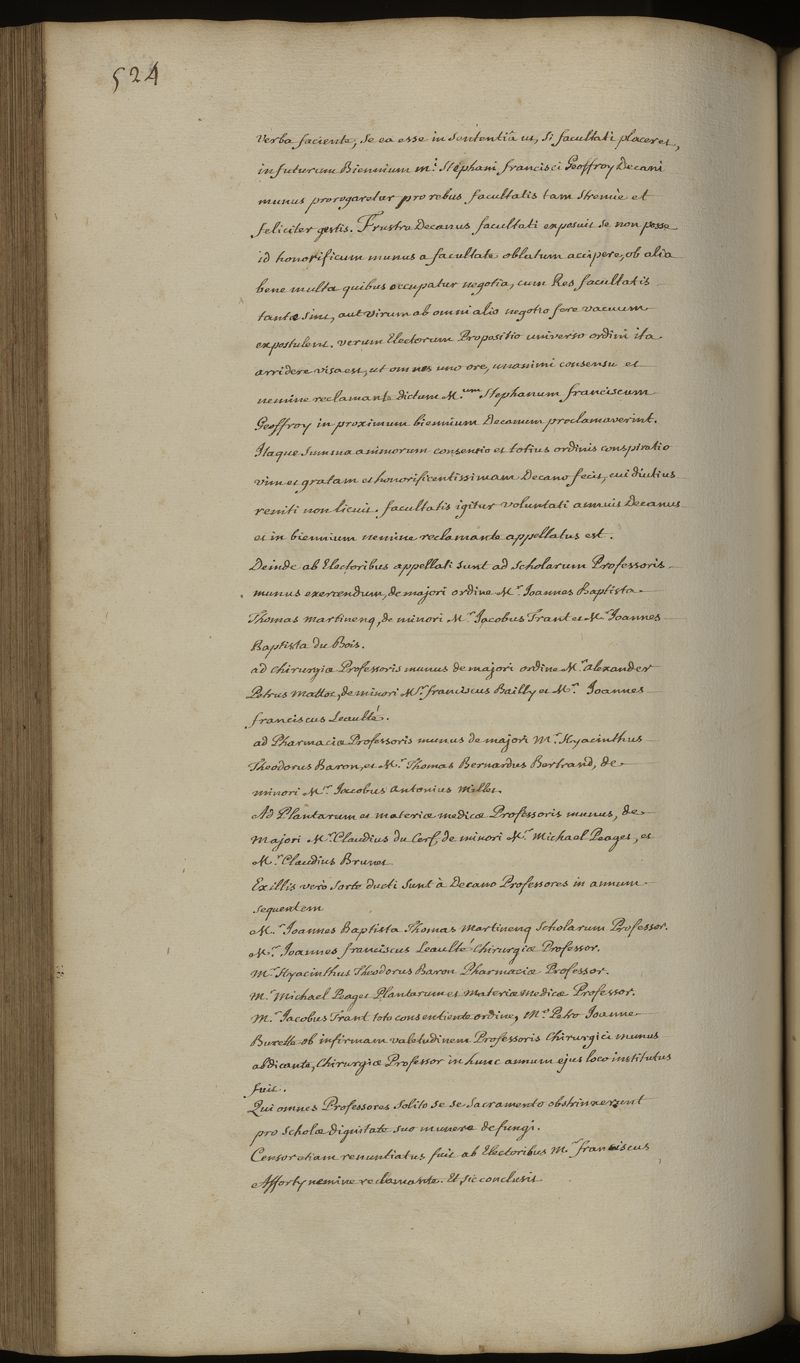 524
verba faciente, se ea esse in sententiâ ut, si facultati placeret,
in futurum Biennium m.i Stephani francisci Geoffroy Decani
munus prorogaretur pro rebus facultatis tam strenuè et
feliciter gestis. Frustra Decanus facultati exposuit se non posse
id honorificum munus a facultate oblatum accipere, ob alia
bene multa quibus occupatur negotia, cum Res facultatis
tantæ sint, aut virum ab omni alio negotio fere vacuum
expostulent. verum Electorum Propositio universo ordini ita
arridere visa est, ut omnes uno ore, unanimi consensu et
nemine reclamante dictum M.um Stephanum franciscum
Geoffroy in proximum biennium Decanum proclamaverint.
Itaque summa animorum consensio et totius ordinis conspiratio
vim et gratam et honorificentissimam Decano fecit, cui diutius
reniti non licuit. facultatis igitur voluntati annuit Decanus
et in biennium nemine reclamante appellatus est.
Deinde ab Electoribus appellati sunt ad Scholarum Professoris
munus exercendum, de majori ordine M.r Joannes Baptista
Thomas Martinenq, de minori M.r Jacobus Trant et M.r Joannes
Baptista du Bois.
ad chirurgiæ Professoris munus de majori ordine M.r alexander
Petrus Mattot, de minori M.r franciscus Bailly et M.r Joannes
franciscus Leaulté.
ad Pharmaciæ Professoris munus de majori M.r Hyacinthus
Theodorus Baron, et M.r Thomas Bernardus Bertrand, de
minori M.r Jacobus Antonius Millet.
Ad Plantarum et materiæ medicæ Professoris munus, de
Majori M.r Claudius du Cerf, de minori M.r Michael Peaget, et
M.r Claudius Brunet
Ex illis verò sorte ducti sunt à Decano Professores in annum
sequentem
M.r Joannes Baptista Thomas Martinenq Scholarum Professor.
M.r Joannes franciscus Leaulté Chirurgiæ Professor.
M.r Hyacinthus Theodorus Baron Pharmaciæ Professor.
M.r Michael Peaget Plantarum et Materiæ Medicæ Professor.
M.r Jacobus Trant toto consentiente ordine, M.o Petro Joanne
Burette ob infirmam valetudinem Professoris Chirurgici munus
abdicante, Chirurgiæ Professor in hunc annum ejus loco institutus
fuit.
Qui omnes Professores solito se se Sacramento obstrinxerunt
pro Scholæ dignitate suo munere defungi.
Censor etiam renuntiatus fuit ab Electoribus M.r franciscus
Afforty nemine reclamante. Et sic conclusit